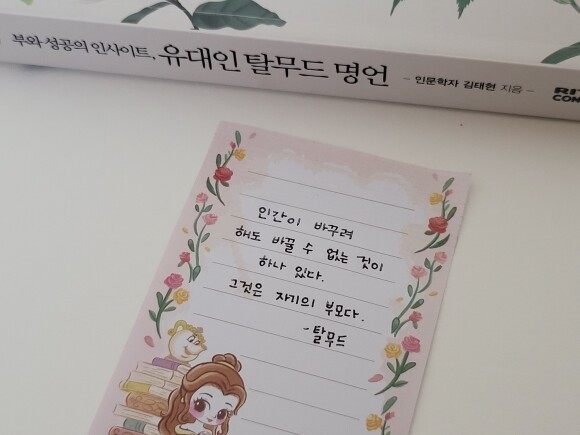 부와 성공의 인사이트, 유대인 탈무드 명언 - 인문학자 김태현 지음 -
인간이 바꾸려
해도 바꿀 수 없는 것이
하나 있다.
그것은 자기의 부모다.
-탈무드